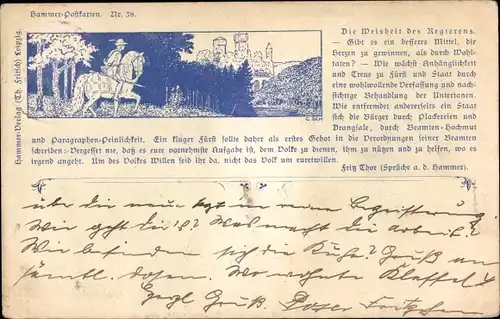 Hammer-Postkarten. Nr. 38.
Hammer-Verlag (Th. Fritsch) Leipzig.
Die Weisheit des Regierens.
– Gibt es ein besseres Mittel, die
Herzen zu gewinnen, als durch Wohl-
taten? – Wie wächst Anhänglichkeit
und Treue zu Fürst und Staat durch
eine wohlwollende Verfassung und nach-
sichtige Behandlung der Untertanen.
Wie entfremdet andererseits ein Staat
sich die Bürger durch Plackereien und
Drangsale, durch Beamten-Hochmut
und Paragraphen-Peinlichkeit. Ein kluger Fürst sollte daher als erstes Gebot in die Verordnungen seiner Beamten
schreiben: Vergesset nie, daß es eure vornehmste Aufgabe ist, dem Volke zu dienen, ihm zu nützen und zu helfen, wo es
irgend angeht. Um des Volkes Willen seid ihr da, nicht das Volk um euretwillen.
Fritz Thor (Sprüche a. d. Hammer).
über die neue in
Wie geht Was macht die Arbeit?
Wie befinden sich die Kühe? Gruß an
sämtl. Wo wohnte
Gruß